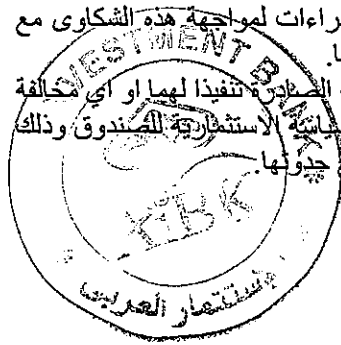 راءات لمواجهة هذه الشكاوى مع
ا.
الصادرة تنفيذا لهما او اي مخالفة
سياسة الاستثمارية للصندوق وذلك
حدوثها.
INVESTMENT BANK
الاستثمار العربى